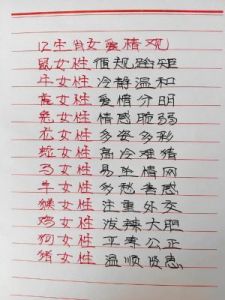 12生肖女爱情观
鼠女性循规蹈矩
牛女性冷静温和
虎女性爱情分明
兔女性情感脆弱
龙女性多姿多彩
蛇女性高冷难猜
马女性易牵情网
羊女性多愁善感
猴女性注重外交
鸡女性泼辣大胆
狗女性平等公正
猪女性温顺贤惠